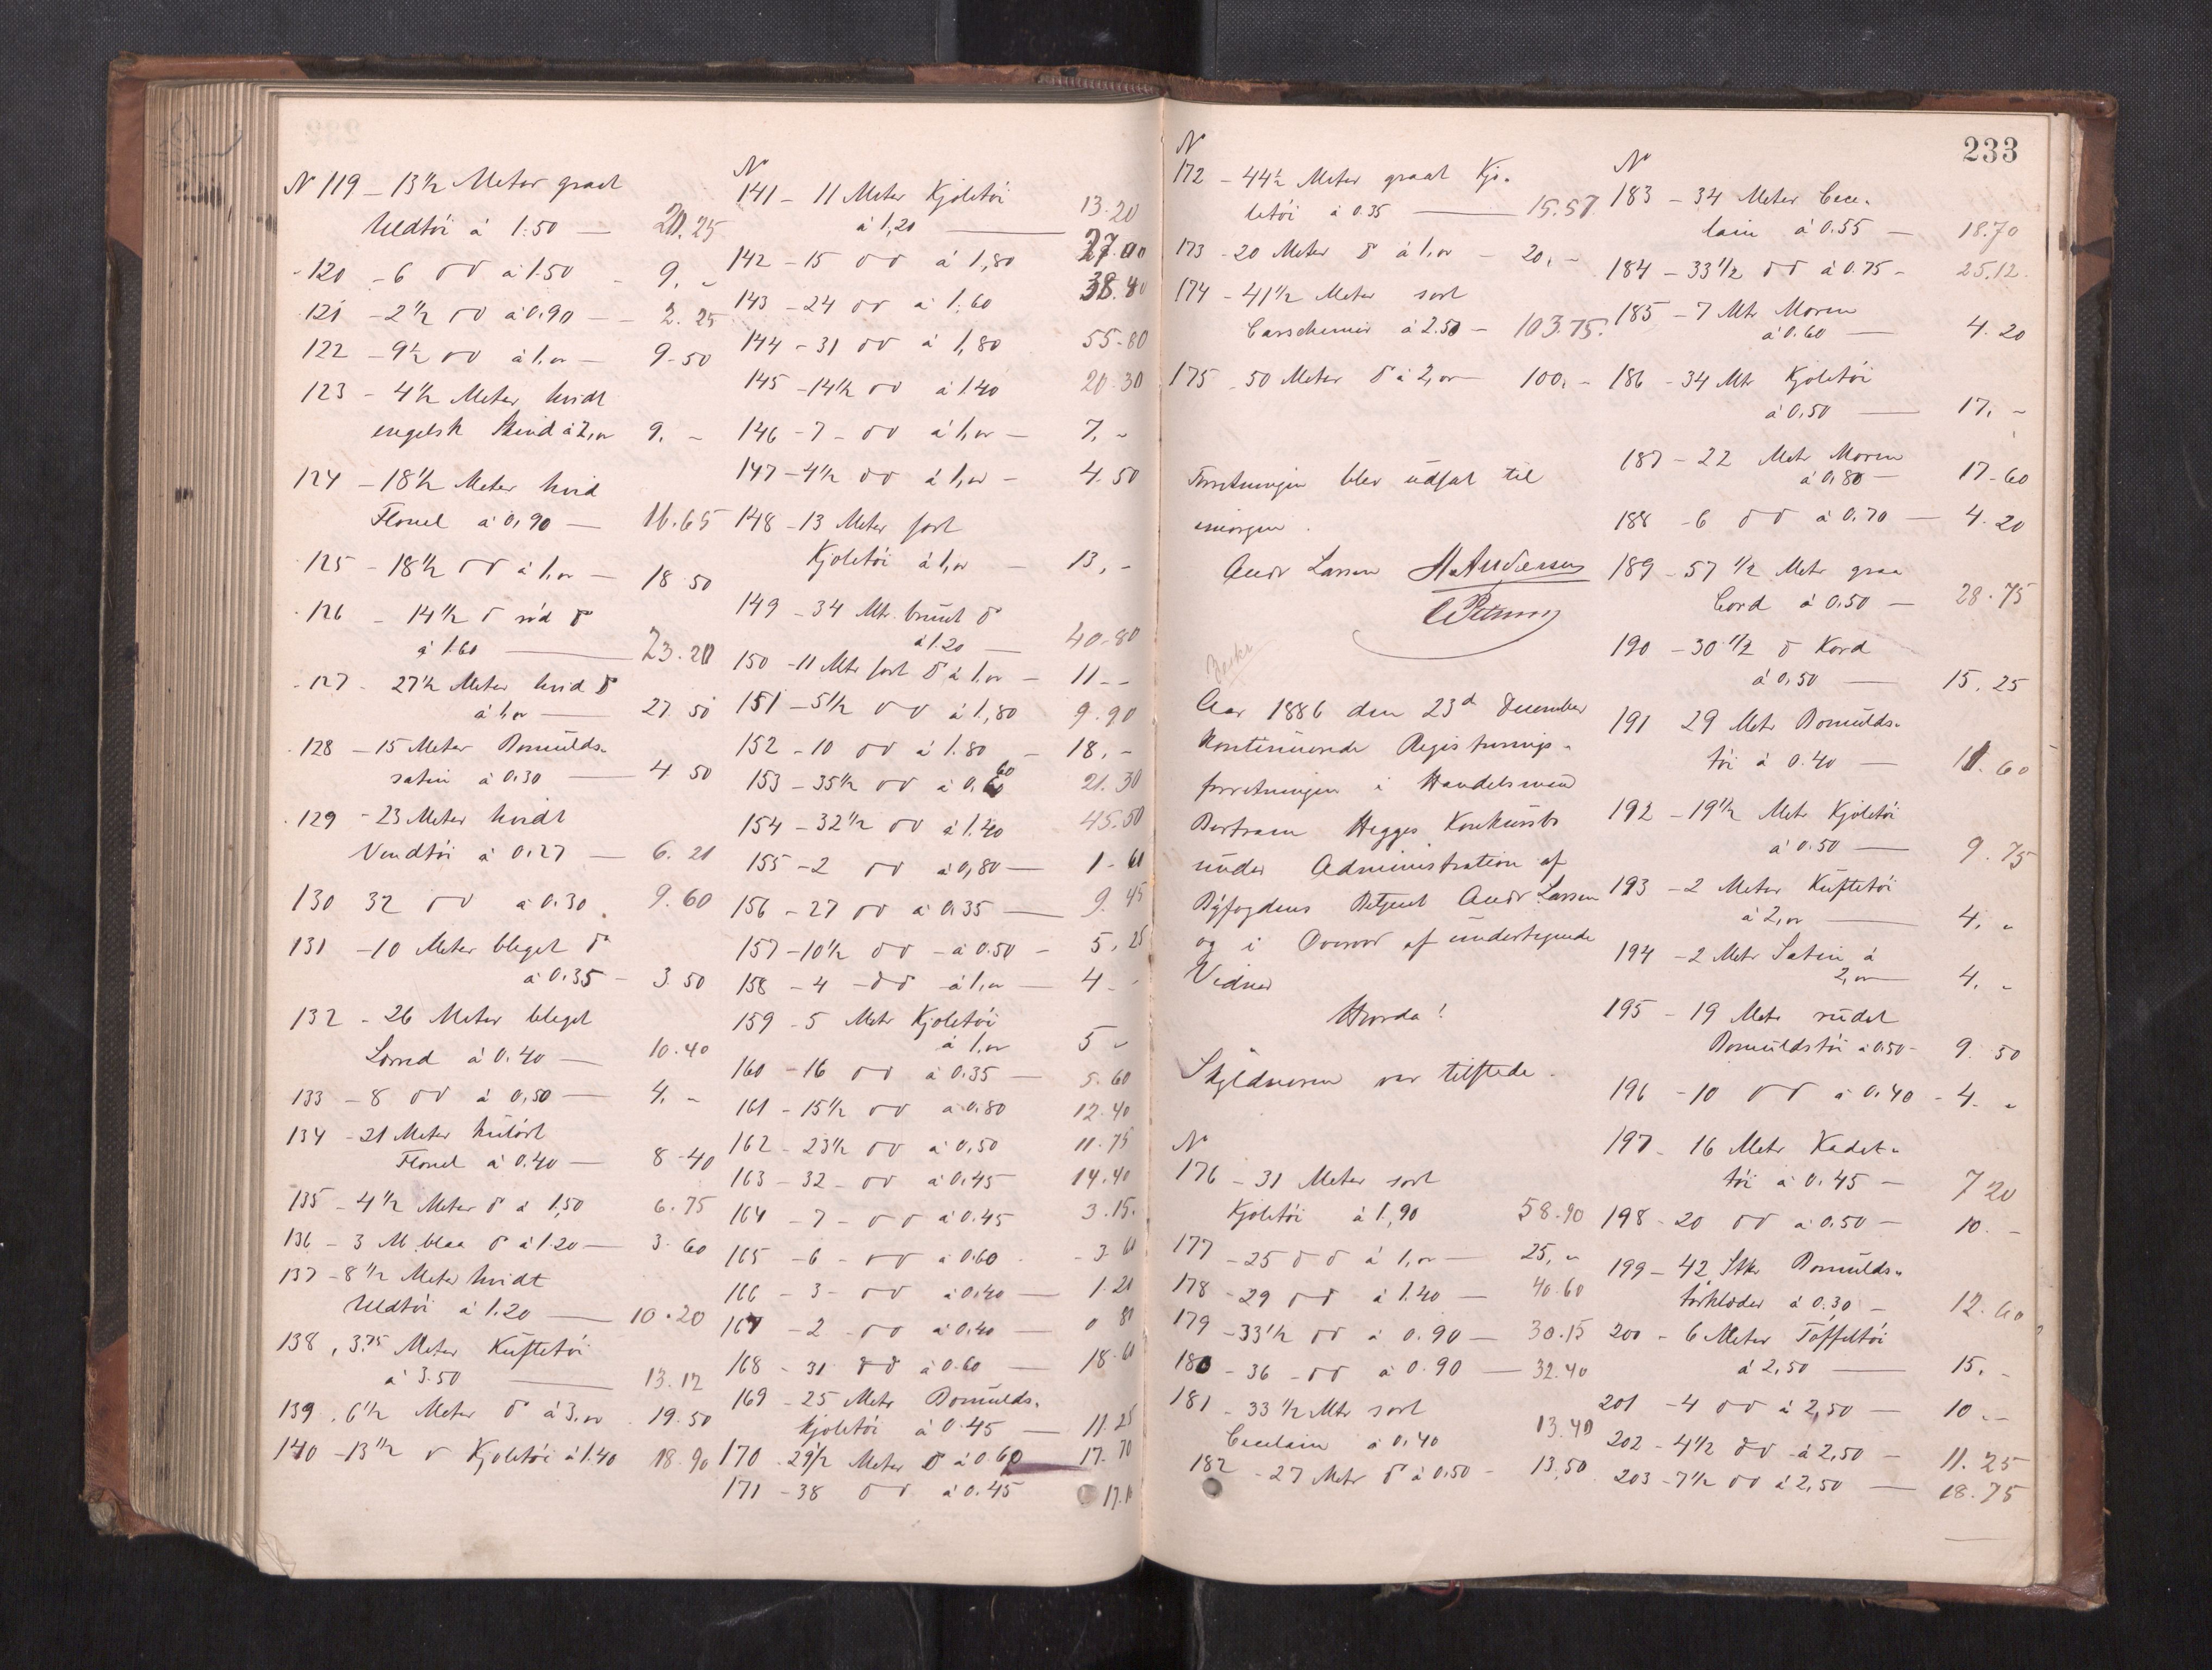 N 119 - 13 1/2 Meter graat
Uldtöi á 1.50 — 20.25
120 - 6 do do á 1.50 - 9. -
121 - 2 1/2 do do á 0.90 - 2.25
122 - 9 1/2 do do á 1,00 - 9.50
123 - 4 1/2 Meter hvidt
engelsk Skind á 2,00 9. -
124 - 18 1/2 Meter hvid
Flonel á 0,90 — 16.65
125 - 18 1/2 do do á 1,00 - 18.50
126 - 14 1/2 do röd do
á 1.60 — 23.20
127 - 27 1/2 Meter hvid do
á 1,00 — 27.50
128 - 15 Meter Bomulds-
satin á 0.30 — 4.50
129 - 23 Meter hvidt
Vendtöi á 0.27 — 6.21
130 32 do do á 0.30 9.60
131 - 10 Meter bleget do
á 0.35 - 3.50
132 - 26 Meter bleget
Lerred á 0.40 — 10.40
133 - 8 do do á 0,50 — 4. -
134 - 21 Meter kulört
Flonel á 0.40 — 8.40
135 - 4 1/2 Meter do á 1,50 6.75
136 - 3 M blaa do á 1.20 — 3.60
137 - 8 1/2 Meter hvidt
Uldtöi á 1.20 — 10.20
138, 3.75 Meter Kuftetöi
á 3.50 — 13.12
139, 6 1/2 Meter do á 3,00 19.50
140 - 13 1/2 do Kjoletöi á 1.40 18.90
N
141 - 11 Meter Kjoletöi
á 1,20 — 13.20
142 - 15 do do á 1,80 27.00
143 - 24 do do á 1.60 38.40
144 - 31 do do á 1,80 55.80
145 - 14 1/2 do do á 1.40 20.30
146 - 7 - do do á 1,00 — 7. -
147 - 4 1/2 do do á 1,00 - 4.50
148 - 13 Meter sort
Kjoletöi á 1,00 - 13, -
149 - 34 Mtr. brunt do
á 1.20 — 40.80
150 - 11 Mtr sort do á 1,00 - 11 - -
151 - 5 1/2 do do á 1,80 9.90
152 - 10 do do á 1.80 - 18, -
153 - 35 1/2 do do á 0,60 21.30
154 - 32 1/2 do do á 1.40 45.50
155 - 2 do do á 0,80 — 1.60
156 - 27 do do á 0,35 — 9.45
157 - 10 1/2 do do - á 0.50 - 5.25
158 - 4 - do do á 1,00 — 4 - -
159 - 5 Metr Kjoletöi
á 1,00 5 -
160 - 16 do do á 0.35 — 5.60
161 - 15 1/2 do do á 0.80 12.40
162 - 23 1/2 do do á 0,50 11.75
163 - 32 - do do á 0.45 14.40
164 - 7 - do do á 0.45 3.15.
165 - 6 - do do á 0.60 - 3.60
166 - 3 - do do á 0.40 — 1.20
167 - 2 - do do á 0.40 — 0 80
168 - 31 do do á 0.60 — 18.60
169 - 25 Metr Bomulds-
kjoletöi á 0.45 — 11.25
170 - 29 1/2 Meter do á 0.60 17.70
171 - 38 do do á 0.45 17.1
233
N
172 - 44 1/2 Meter graat Kjo-
letöi á 0.35 — 15.57
173 - 20 Meter do á 1,00 - 20, -
174 - 41 1/2 Meter sort
Casschemir á 2.50 - 103.75.
175 - 50 Meter do á 2,00 — 100, -
Forretningen blev udsat til
imorgen.
Andr Larsen
Aar 1886 den 23d December
kontinuerede Registrerings-
forretningen i Handelsmand
Bertram Hegges Konkursbo
under Administration af
Byfogdens Betjent Andr Larsen
og i Overvær af undertegnede
Vidner
Hvorda!
Skyldneren var tilstede.
N
176 - 31 Meter sort
Kjoletöi á 1,90 58.90
177 - 25 do do á 1,00 — 25, -
178 - 29 do do á 1.40 — 40.60
179 - 33 1/2 do do á 0.90 — 30.15
180 - 36 - do do á 0.90 — 32.40
181 - 33 1/2 Mtr sort
Cecelain á 0,40 13.40
182 - 27 Metr do á 0,50 - 13,50
N
183 - 34 Meter Cece-
lain á 0.55 — 18.70
184 - 33 1/2 do do á 0.75 - 25.12.
185 - 7 Mtr Moren
á 0.60 — 4.20
186 - 34 Mtr Kjoletöi
á 0,50 — 17. -
187 - 22 Metr Moren
á 0,80 — 17.60
188 - 6 do do á 0.70 — 4.20
189 - 57 1/2 Metr graa
Cord á 0,50 — 28.75
190 - 30 1/2 do Kord
á 0,50 — 15.25
191 29 Metr Bomulds-
töi á 0.40 — 11.60
192 - 19 1/2 Metr Kjoletöi
á 0.50 — 9.75
193 - 2 Meter Kuftetöi
á 2,00 — 4. -
194 - 2 Metr Satin á
2,00 — 4. -
195 - 19 Metr rudet
Bomuldstöi á 0.50 - 9.50
196 - 10 do do á 0.40 - 4. -
197 - 16 Metr Kadet-
töi á 0.45 — 7 20
198 - 20 do do á 0.50 — 10. -
199 - 42 Stkr Bomulds-
törklæder á 0.30 - 12.60
200 - 6 Meter Töffeltöi
á 2,50 — 15. -
201 - 4 do do á 2,50 — 10. -
202 - 4 1/2 do do á 2,50 — 11.25
203 - 7 1/2 do do á 2,50 — 18.75